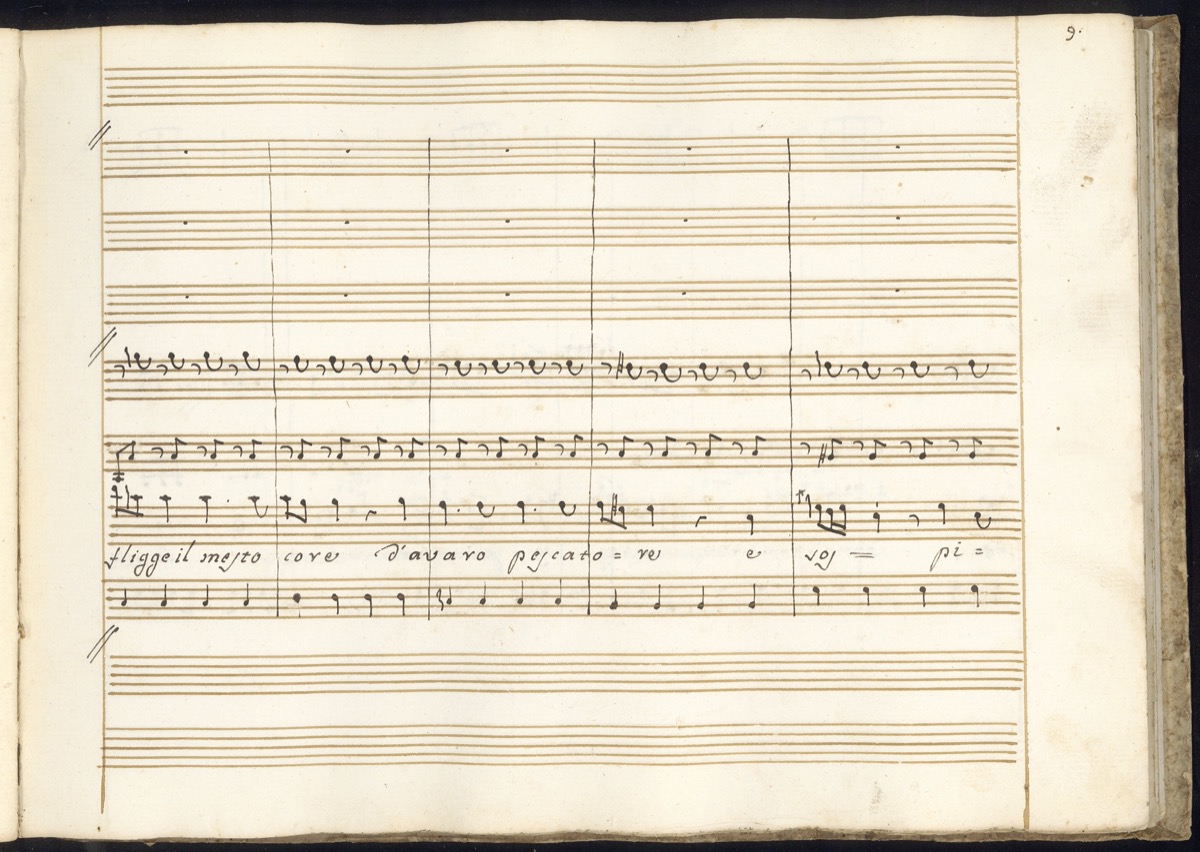 9.
fligge il mesto core d'avaro pescato = re e sos = pi =